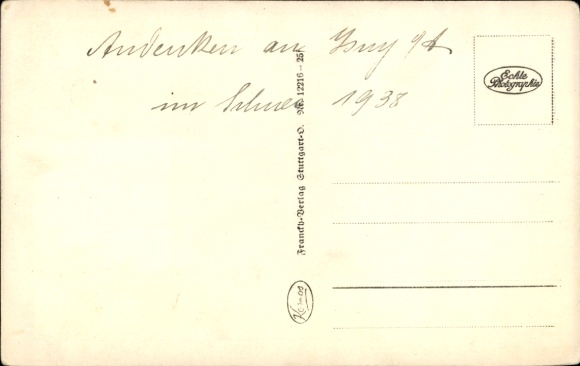 Andenken an Isny
im Schnee 1938
Echte
Photographie
Franckh-Verlag Stuttgart-O. Nr. 12216-25
Kosmos